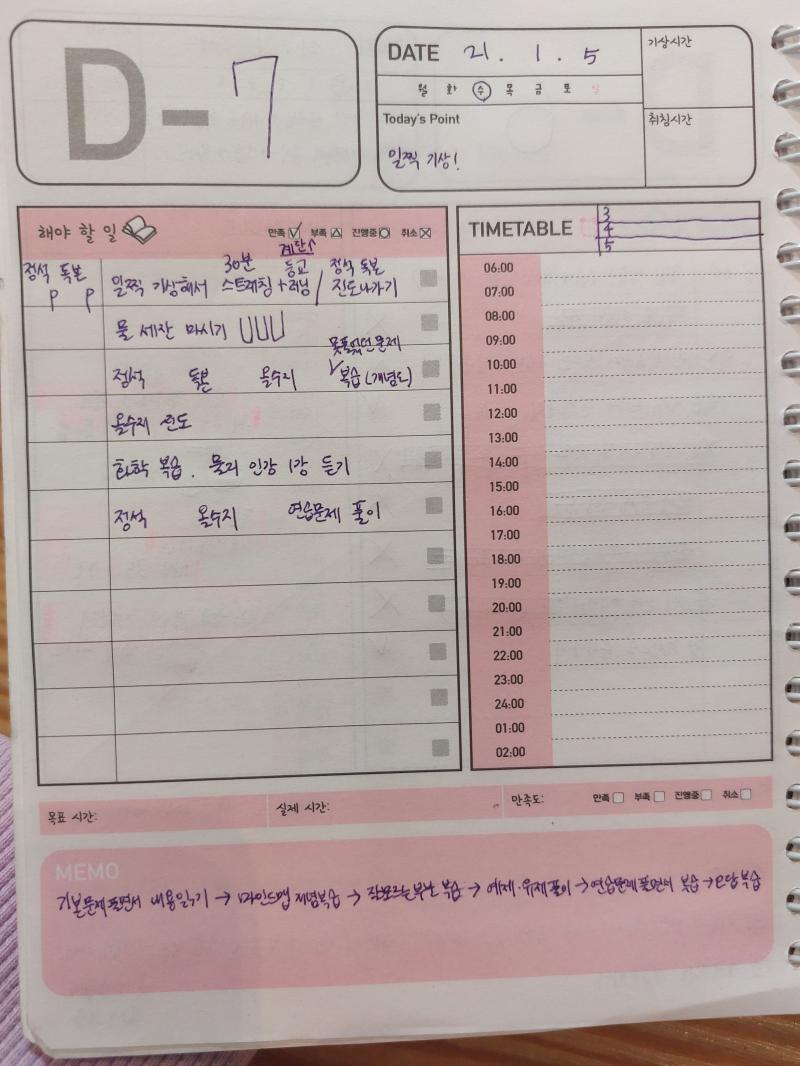 D-7
DATE 21. 1. 5
기상시간
월 화 수 목 금 토 일
Today's Point
취침시간
일찍 기상!
해야 할 일
만족 부족 진행중 취소
TIMETABLE
3
4
5
정석 독본
P P
30분 등교 정석 독본
일찍 기상해서 스트레칭 + 러닝 / 진도나가기
물 세잔 마시기
정석 독본 올수지 복습 (개념도)
올수지 진도
화학 복습. 물리 인강 1강 듣기
정석 올수지 연습문제 풀이
06:00
07:00
08:00
09:00
10:00
11:00
12:00
13:00
14:00
15:00
16:00
17:00
18:00
19:00
20:00
21:00
22:00
23:00
24:00
01:00
02:00
목표 시간:
실제 시간:
만족도:
만족 부족 진행중 취소
MEMO
기본문제 풀면서 내용읽기 → 마인드맵 개념복습 → 잘모르는부분 복습 → 예제·유제풀이 → 연습문제 풀면서 복습 → 오답복습